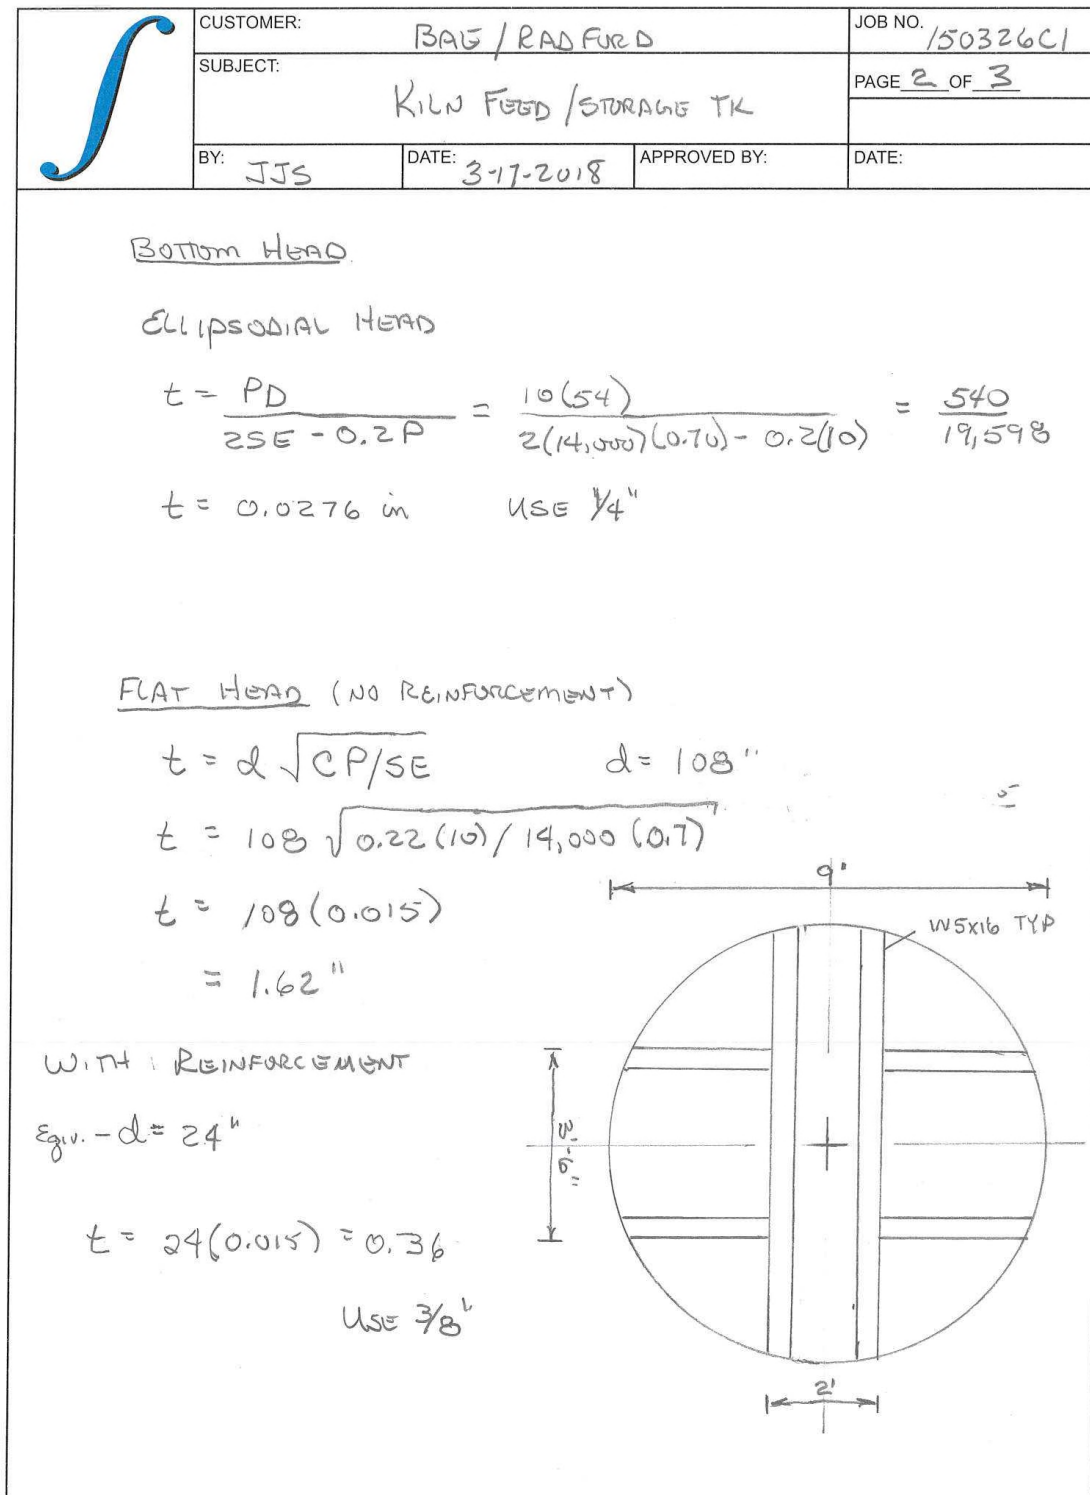 CUSTOMER: BAE / RADFORD
JOB NO. 150326C1
SUBJECT: KILN FEED / STORAGE TK
PAGE 2 OF 3
BY: JJS
DATE: 3-17-2018
APPROVED BY:
DATE:
BOTTOM HEAD
ELLIPSODIAL HEAD
t = PD / 2SE - 0.2P = 10(54) / 2(14,000)(0.70) - 0.2(10) = 540 / 19,598
t = 0.0276 in USE 1/4"
FLAT HEAD (NO REINFORCEMENT)
t = d √CP/SE d = 108"
t = 108 √0.22(10) / 14,000 (0.7)
t = 108(0.015)
= 1.62"
9'
W5x16 TYP
WITH REINFORCEMENT
Eqiv. - d = 24"
3'-6"
t = 24(0.015) = 0.36
USE 3/8"
2'